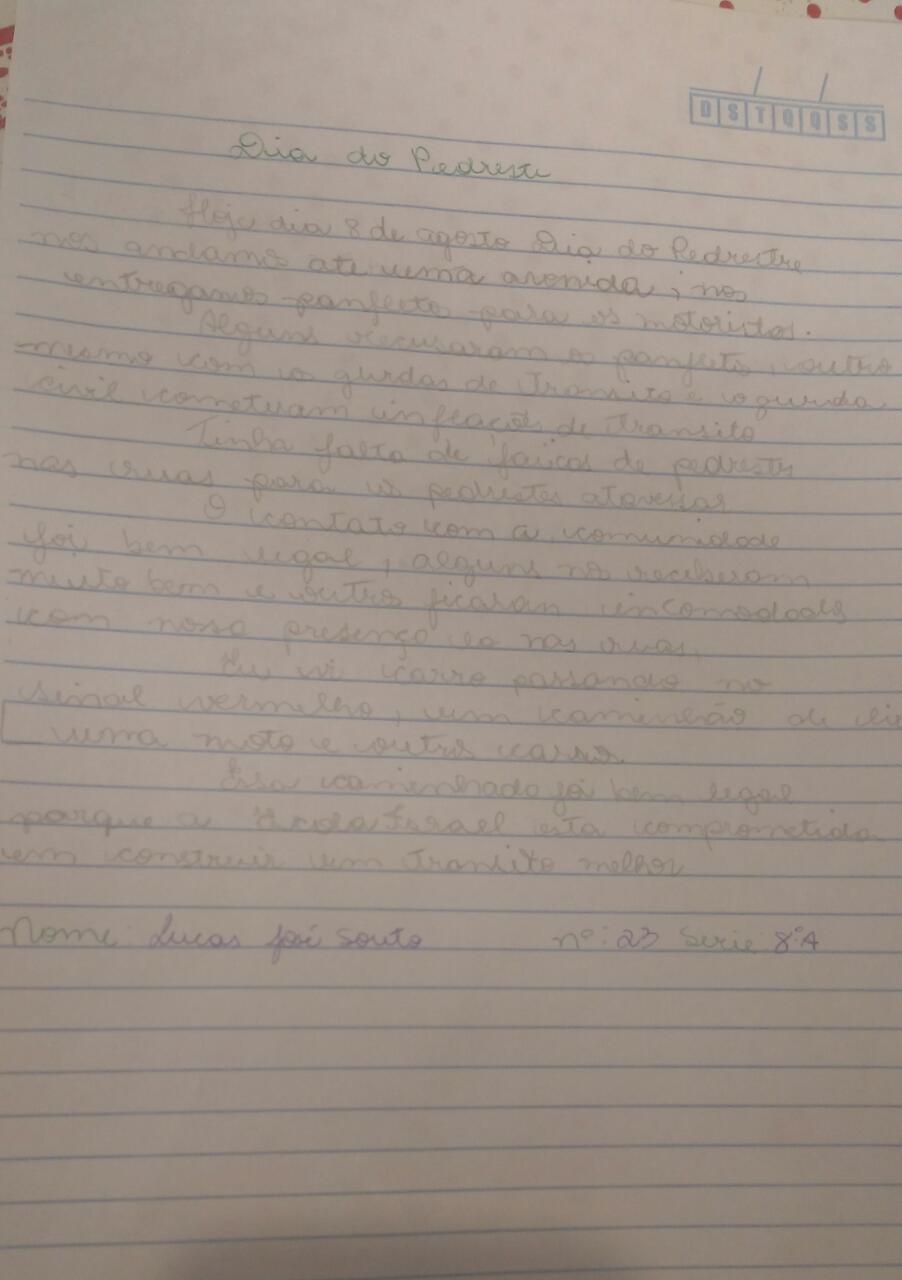 D S T Q Q S S
Dia do Pedreste
Hoje dia 8 de agosto Dia do Pedrestre
nos andamos ate uma avenida, nos
entregamos panfecto para os motoristas.
Alguns recusaram os panfecto, outro
mesmo com os gurdas de Transito e o gurda
civil cometuam infeações de Transito
Tinha falta de faixas de pedrests
nas ruas para os pedrestes atravessar
O contato com a comunidade
foi bem legal, alguns nos receberam
muito bem e outros ficaram incomodados
com nosa presença la nas ruas.
Eu vi carro passando no
sinal vermelho, um caminhão de
uma moto e outros carros.
Essa caminhada foi bem legal
porque a Escola Israel esta comprometida
em construir um Transito melhor
Nome: Lucas José Souto nº: 23 Serie 8ºA